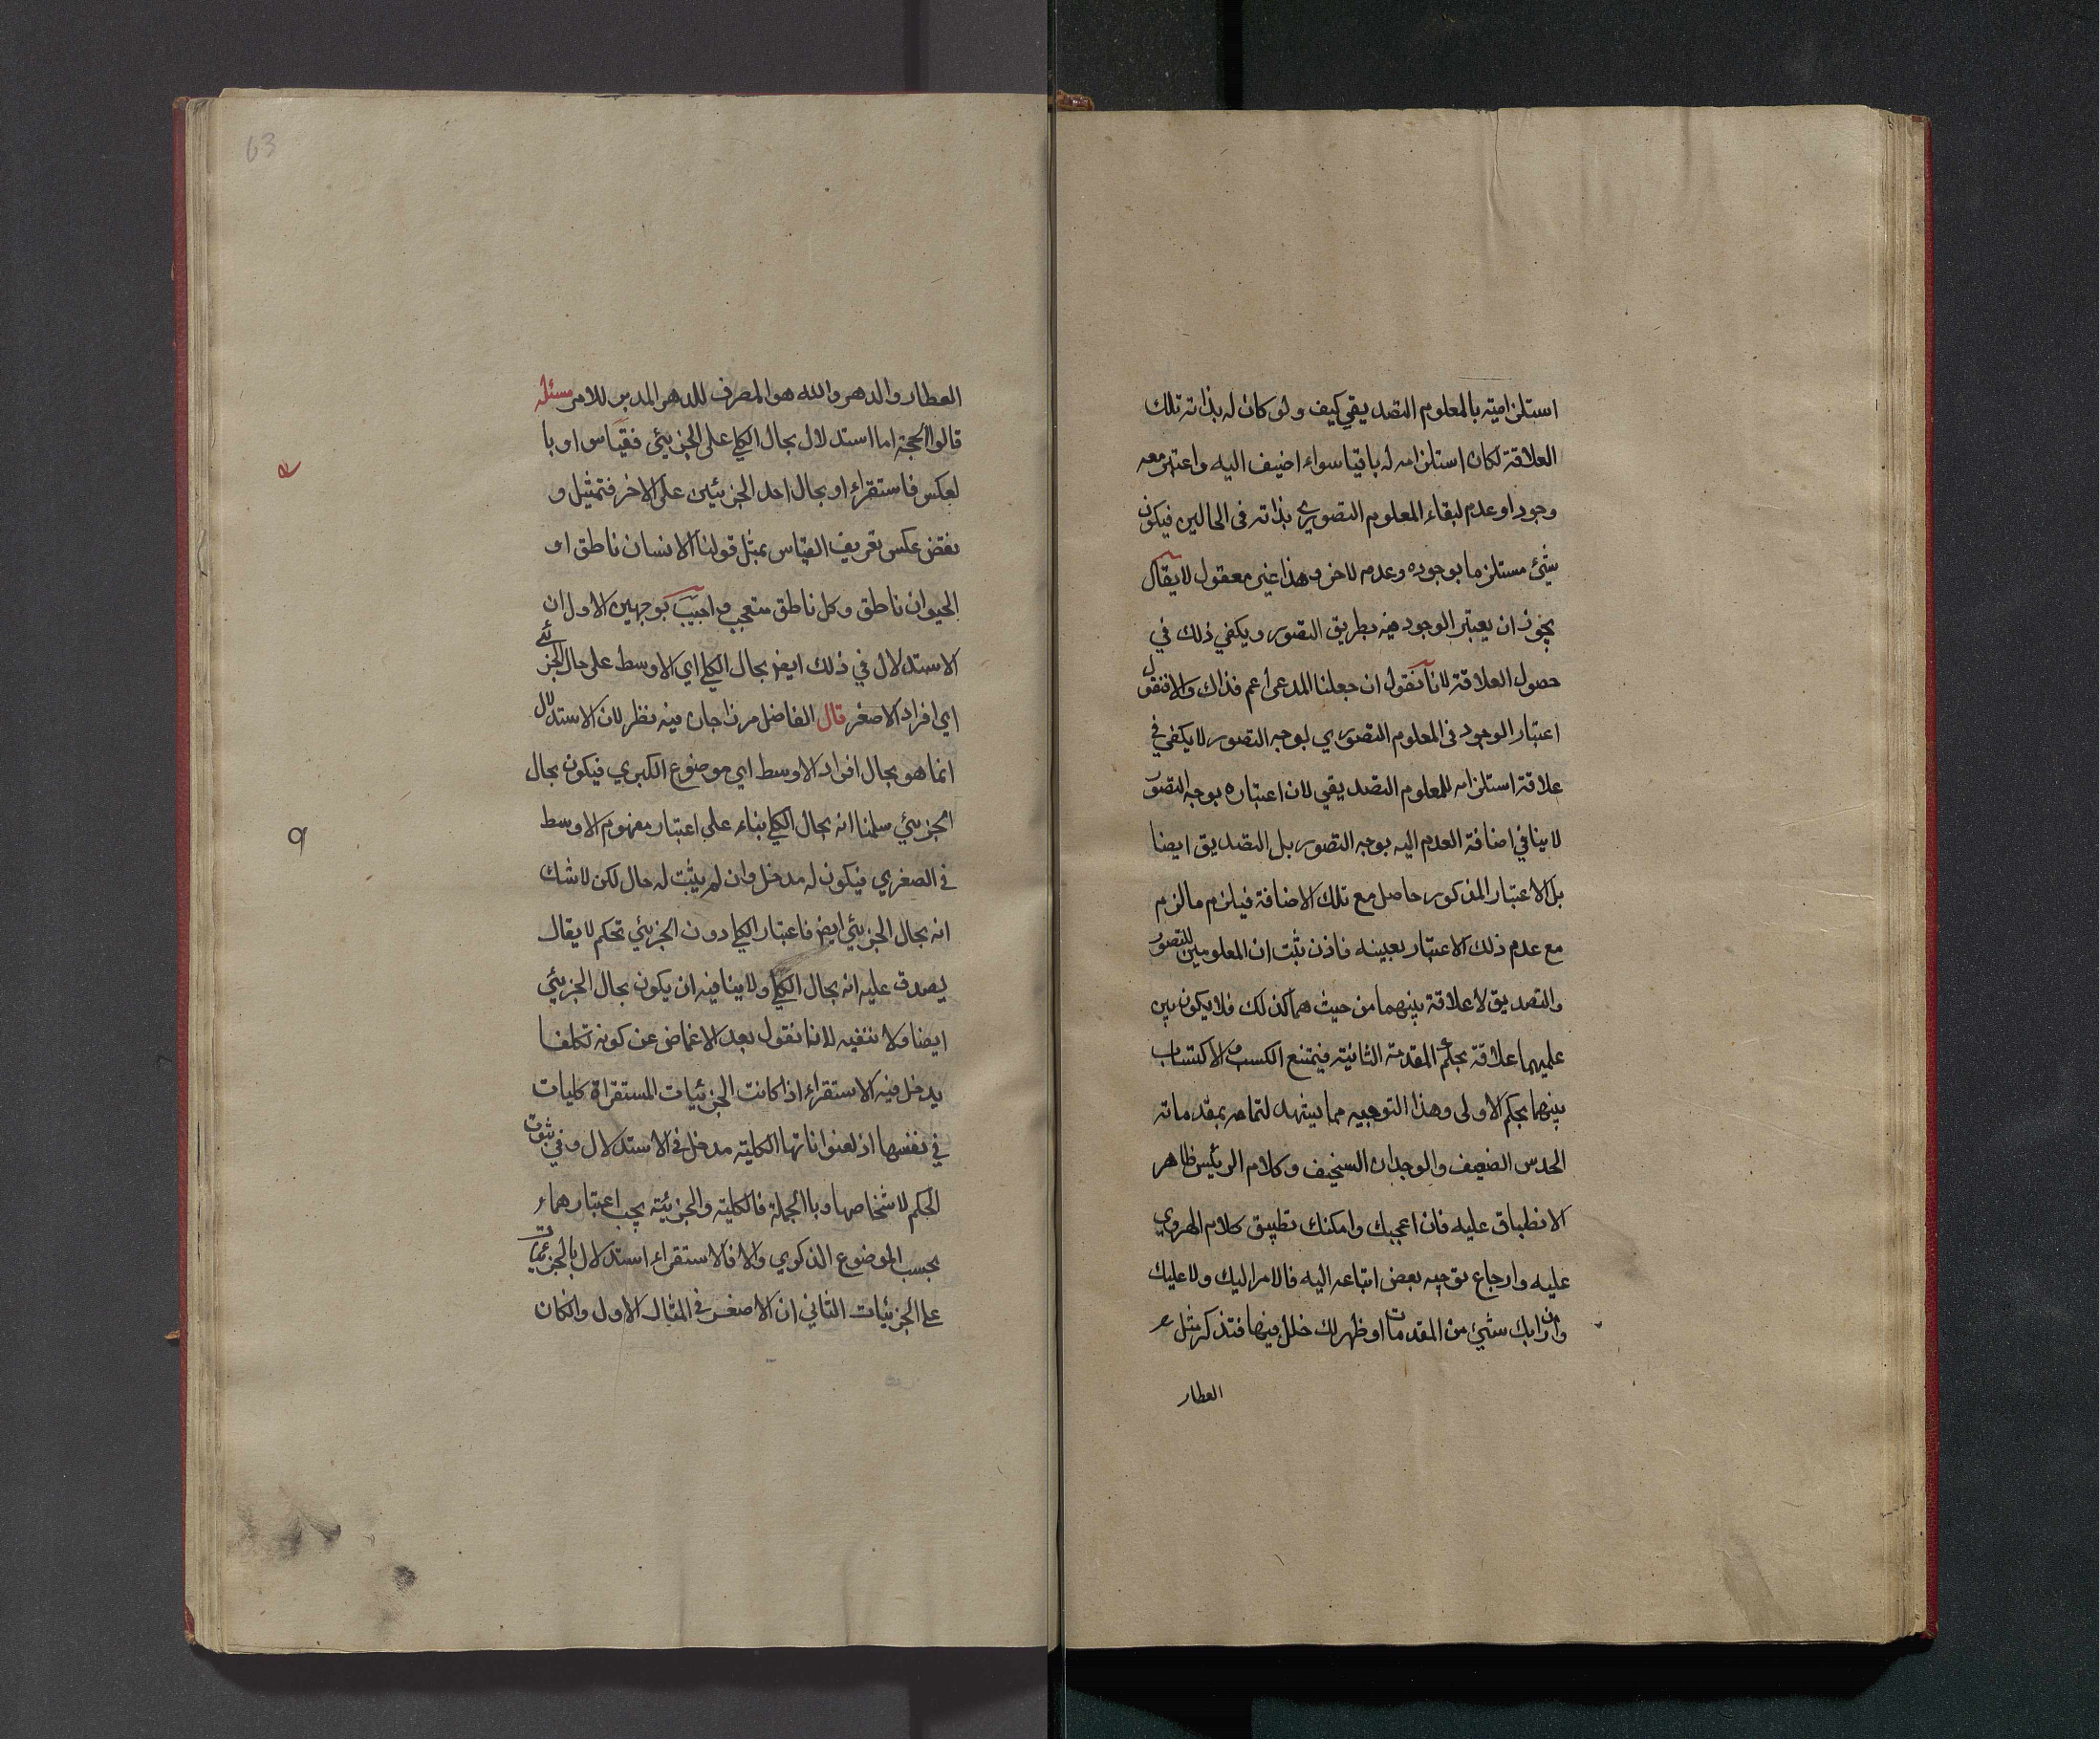 استلزاميته بالمعلوم التصديقي كيف ولو كان له بذاته تلك
العلاقة لكان استلزامه له باقيا سواء اضيف اليه واعتبر معه
وجود او عدم لبقاء المعلوم التصوري بذاته فى الحالين فيكون
شيئ مستلزما بوجوده وعدمه لاخر وهذا غير معقول لا يقال
يجوز ان يعتبر الوجود فيه بطريق التصور ويكفي ذلك في
حصول العلاقة لانا نقول ان جعلنا المدعى اعم فذاك والا فنقول
اعتبار الوجود فى المعلوم التصوري بوجه التصور لا يكفي في
علاقة استلزامه للمعلوم التصديقي لان اعتباره بوجه التصور
لا ينافي اضافة العدم اليه بوجه التصور بل التصديق ايضا
بل الاعتبار المذكور حاصل مع تلك الاضافة فيلزم ما لزم
مع عدم ذلك الاعتبار بعينه فاذن ثبت ان المعلومين للتصور
والتصديق لا علاقة بينهما من حيث هما كذلك فلا يكون بين
علميهما علاقة بحكم المقدمة الثانية فيمتنع الكسب والاكتساب
بينهما بحكم الاولى وهذا التوجيه مما يشهد لتمامه بمقدماته
الحدس الضعيف والوجدان السخيف وكلام الرئيس ظاهر
الانطباق عليه فان اعجبك وامكنك تطبيق كلام الهروي
عليه وارجاع توجيه بعض اتباعه اليه فالامر اليك ولا عليك
وان رابك شيئ من المقدمات او ظهر لك خلل فيها فتذكر مثل
العطار
63
العطار والدهر والله هو المصرف للدهر المدبر للامر مسئلة
قالوا الحجة اما استدلال بحال الكلي على الجزيئي فقياس او با
لعكس فاستقراء او بحال احد الجزيئين على الاخر فتمثيل و
نقض عكس تعريف القياس بمثل قولنا الانسان ناطق او
الحيوان ناطق وكل ناطق متعجب واجيب بوجهين الاول ان
الاستدلال في ذلك ايضا بحال الكلي اي الاوسط على حال الجزئي
اي افراد الاصغر قال الفاضل مرزاجان فيه نظر لان الاستدلال
انما هو بحال افراد الاوسط اي موضوع الكبري فيكون بحال
الجزيئي سلمنا انه بحال الكلي بناء على اعتبار مفهوم الاوسط
فى الصغري فيكون له مدخل وان لم يثبت له حال لكن لا شك
انه بحال الجزيئي ايضا فاعتبار الكلي دون الجزيئي تحكم لا يقال
يصدق عليه انه بحال الكلي ولا ينافيه ان يكون بحال الجزيئي
ايضا ولا ننفيه لانا نقول بعد الاغماض عن كونه تكلفا
يدخل فيه الاستقراء اذا كانت الجزئيات المستقراة كليات
في نفسها اذ لعنواناتها الكلية مدخل فى الاستدلال وفي ثبوت
الحكم لاشخاصها وباالجملة فالكلية والجزئية يجب اعتبارهما
بحسب الموضوع الذكوري والا فالاستقراء استدلال بالجزئيات
على الجزئيات الثاني ان الاصغر فى المثال الاول وانكان